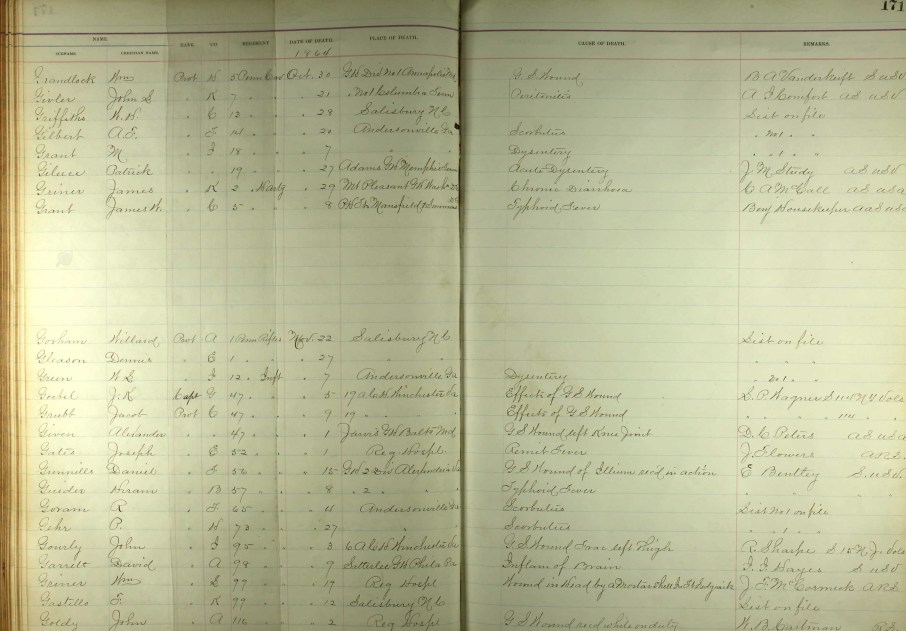 171
NAME. RANK. CO. REGIMENT. DATE OF DEATH. PLACE OF DEATH. CAUSE OF DEATH. REMARKS.
SURNAME. CHRISTIAN NAME. 1864
Grandlock Wm Pvt H 5 Penn Cav Oct. 30 G.H. Div No 1 Annapolis Md G S Wound B A Vanderkieft S US V
Givler John S. " K 7 " " " 21 " No 1 Columbia Tenn A I Comfort A S US V
Griffiths W. H " C 12 " " " 29 Salisbury N C List on file
Gilbert A. E. " F 14 " " " 20 Andersonville Ga Scorbutus " No 1 " "
Grant M " I 18 " " " 7 " " Dysentery " " 1 " "
Patrick " " 19 " " " 27 Adams G H Memphis Tenn Acute Dysentery J M Study A S US V
Griner James " K 2 " H arty " 29 Mt Pleasant G H Wash DC Chronic Diarrhoea C A McCall A S US A
Grant James W. " C 5 " " " 8 Mansfield Typhoid Fever Benj Housekeeper A A S US A
Gorham Willard Pvt A 1 Penn Rifles Nov. 22 Salisbury N C List on file
Gleason Dennis " E 1 " " " 27 " " " " "
Green W. S " I 12 " Inft " 7 Andersonville Ga Dysentery " No 1 " "
Goebel J. K Capt G 47 " " " 5 Winchester Va Effects of G S Wound
Grubt Jacob Pvt C 47 " " " 9 19 " " " Effects of G S Wound
Given Alexander " " 47 " " " 1 Jarvis G H Balto Md G S Wound left Knee Joint D. C Peters A S US A
Gates Joseph " E 52 " " " 1 Reg Hospl Remit Fever J. Flowers A R S.
Gunnills Daniel " F 56 " " " 15 G H 2 Div Alexandria Va G S Wound of Illium recd in action E Bentley S. US V.
Guider Hiram " B 57 " " " 8 " 2 " " Typhoid Fever " " " "
Goram R " F 65 " " " 11 Andersonville Ga Scorbutus List No 1 on file
Gehr P. " H 73 " " " 27 " " Scorbutus " 1 " "
Gourly John " I 95 " " " 3 Winchester Va G S Wound Frac left Thigh R. Sharpe S 15 N. J. Vols
Garrett David " A 98 " " " 9 Satterlee G H Phila Pa Inflam of Brain I. I Hayes S US V
Griner Wm " 99 " " " 17 Reg Hospl Wound in Head by a Mortar Shell J. F. McCormick A R S
Gastello F. " K 99 " " " 12 Salisbury N C List on file
Goldy John " A 116 " " " 2 Reg Hospl G S Wound recd while on duty W. B. Hartman R S.